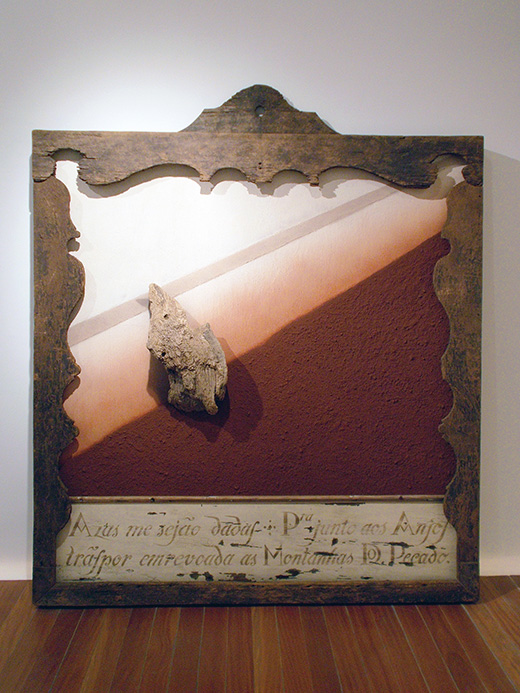 Azas me sejão dadas ⁘ Pra junto aos Anjos
trãspor em revoada as Montanhas DO Pecado.